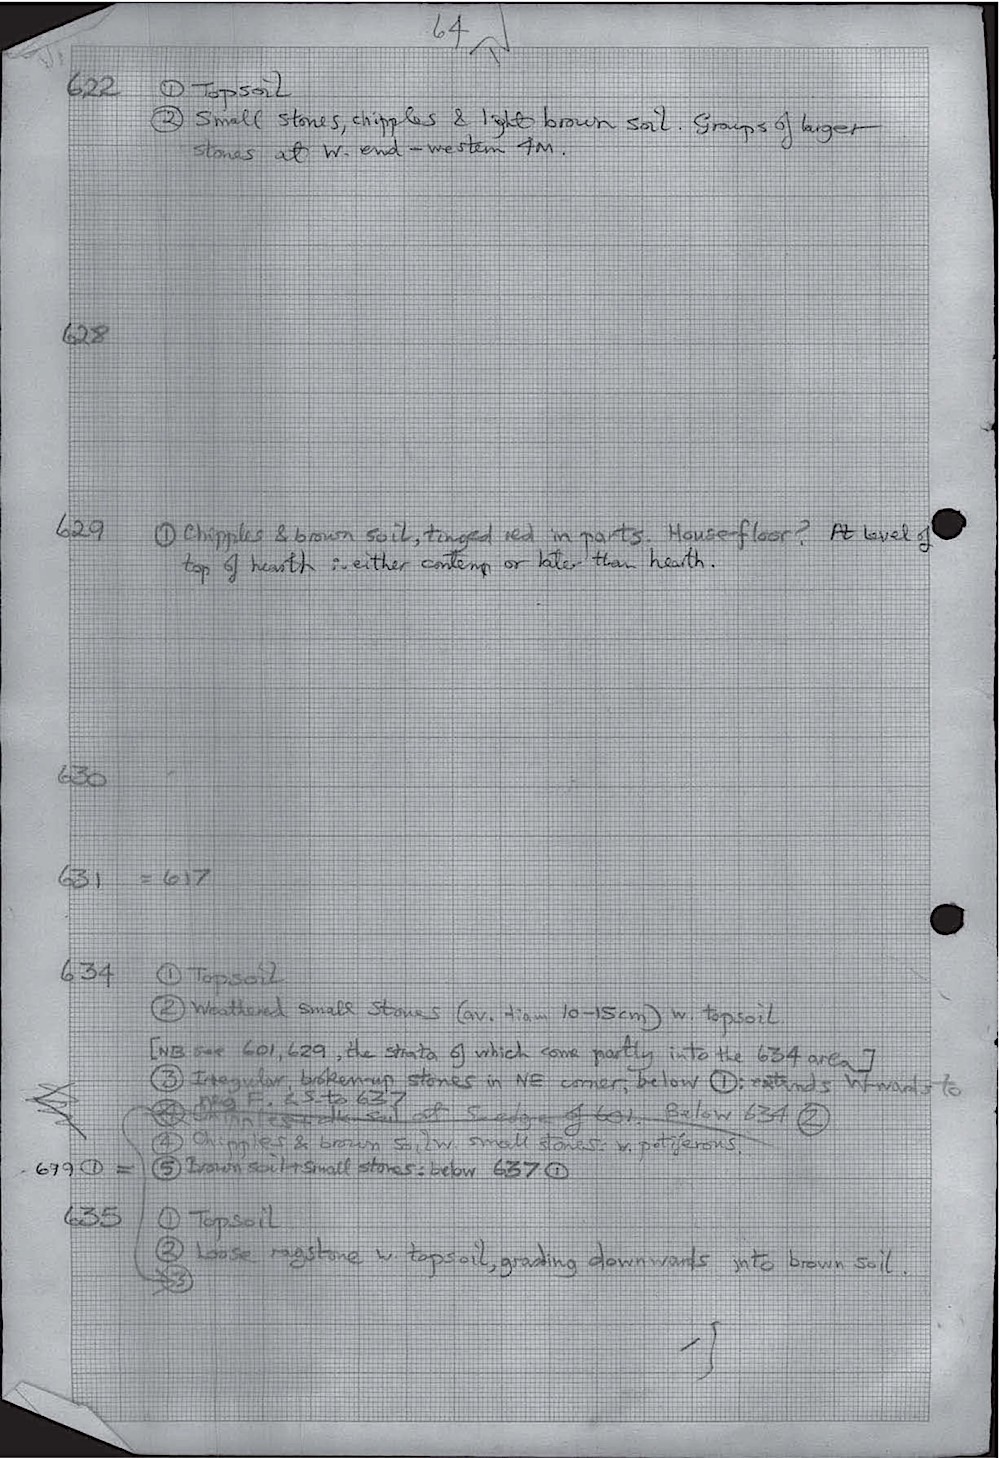 64
622 ① Topsoil
② Small stones, chipples & light brown soil. Groups of larger
stones at W. end - western 4M.
628
629 ① Chipples & brown soil, tinged red in parts. House-floor? At level of
top of hearth ∴ either contemp or later than hearth.
630
631 = 617
634 ① Topsoil
② Weathered small stones (av. diam 10-15cm) w. topsoil.
[NB see 601, 629, the strata of which come partly into the 634 area]
③ Irregular, broken-up stones in NE corner, below ①: extends W wards to
F. 65. to 637
④ Chipples & dk soil at S edge of 601. Below 634 ②
④ Chipples & brown soil w. small stones: v. potiferous.
679 ① = ⑤ Brown soil + small stones: below 637 ①
635 ① Topsoil
② Loose ragstone w. topsoil, grading downwards into brown soil.
③